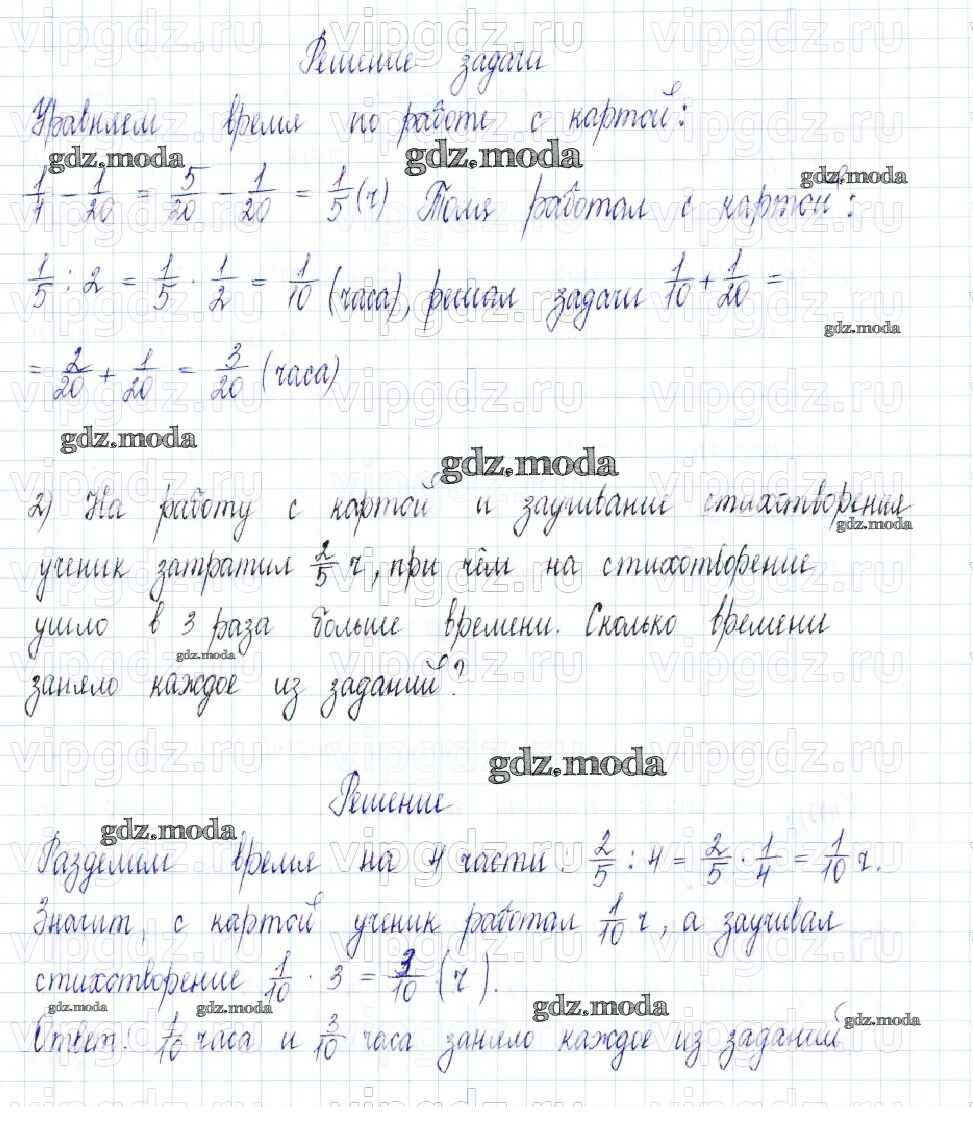 Решение задачи
Уравняем время по работе с картой:
1/4 - 1/20 = 5/20 - 1/20 = 1/5 (ч) Толя работал с картой:
1/5 : 2 = 1/5 · 1/2 = 1/10 (часа), решал задачи 1/10 + 1/20 =
= 2/20 + 1/20 = 3/20 (часа)
2) На работу с картой и заучивание стихотворения
ученик затратил 2/5 ч, при чём на стихотворение
ушло в 3 раза больше времени. Сколько времени
заняло каждое из заданий?
Решение
Разделим время на 4 части: 2/5 : 4 = 2/5 · 1/4 = 1/10 ч.
Значит, с картой ученик работал 1/10 ч, а заучивал
стихотворение 1/10 · 3 = 3/10 (ч).
Ответ: 1/10 часа и 3/10 часа заняло каждое из заданий
gdz.moda
vipgdz.ru